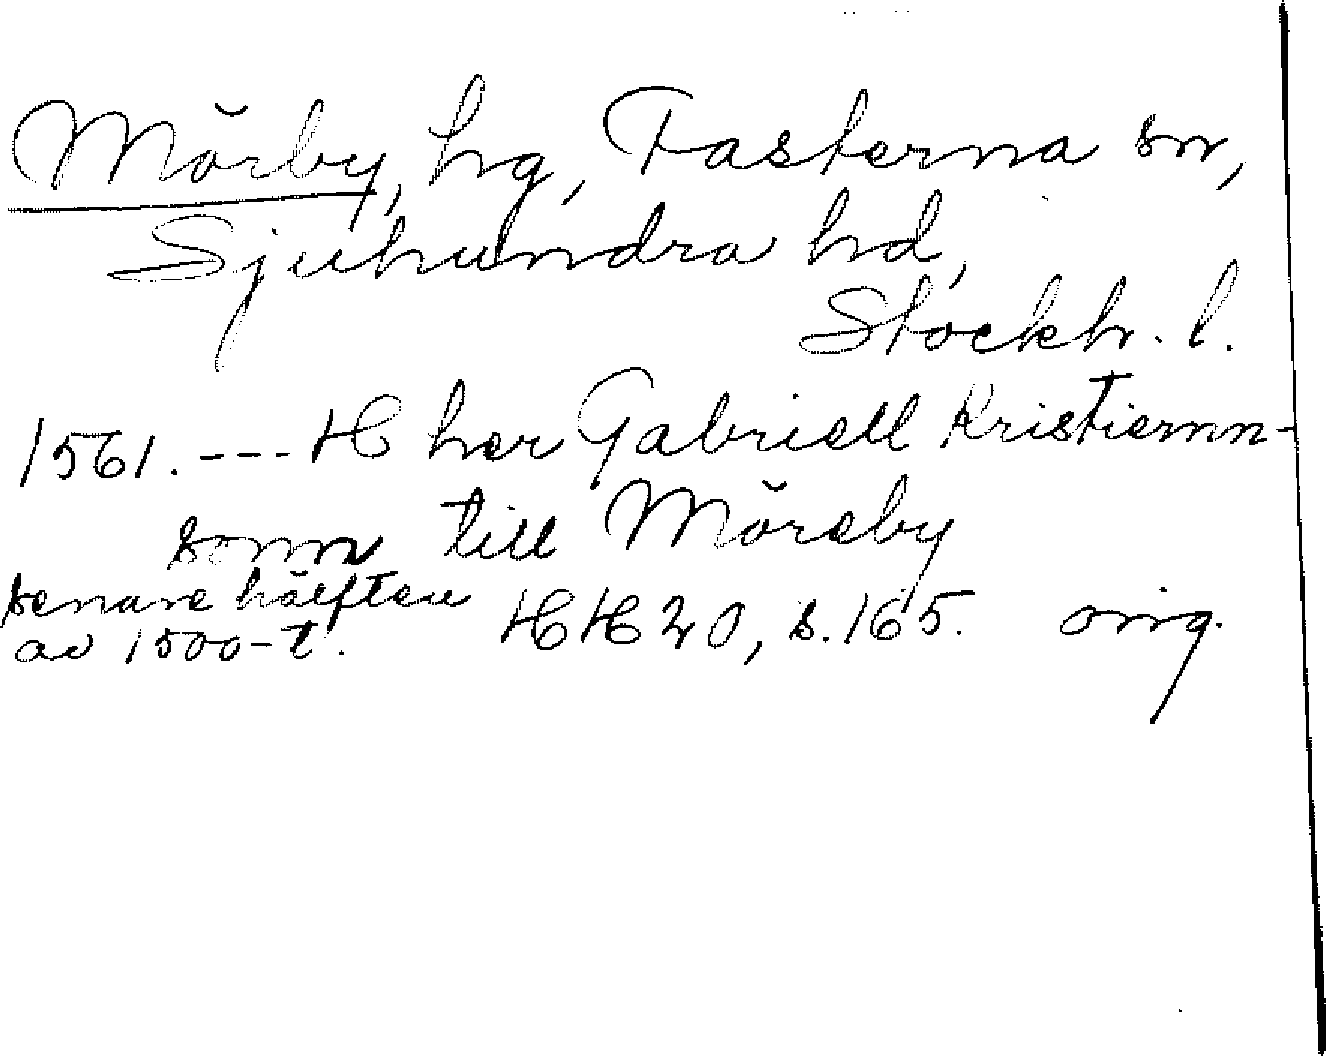 Mörby, hg, Fasterna sn,
Sjuhundra hd,
Stockh. l.
1561. --- H her Gabriell Kristiernn-
sonn till Möreby
senare hälften
av 1500-t. HH 20, s. 165. orig.